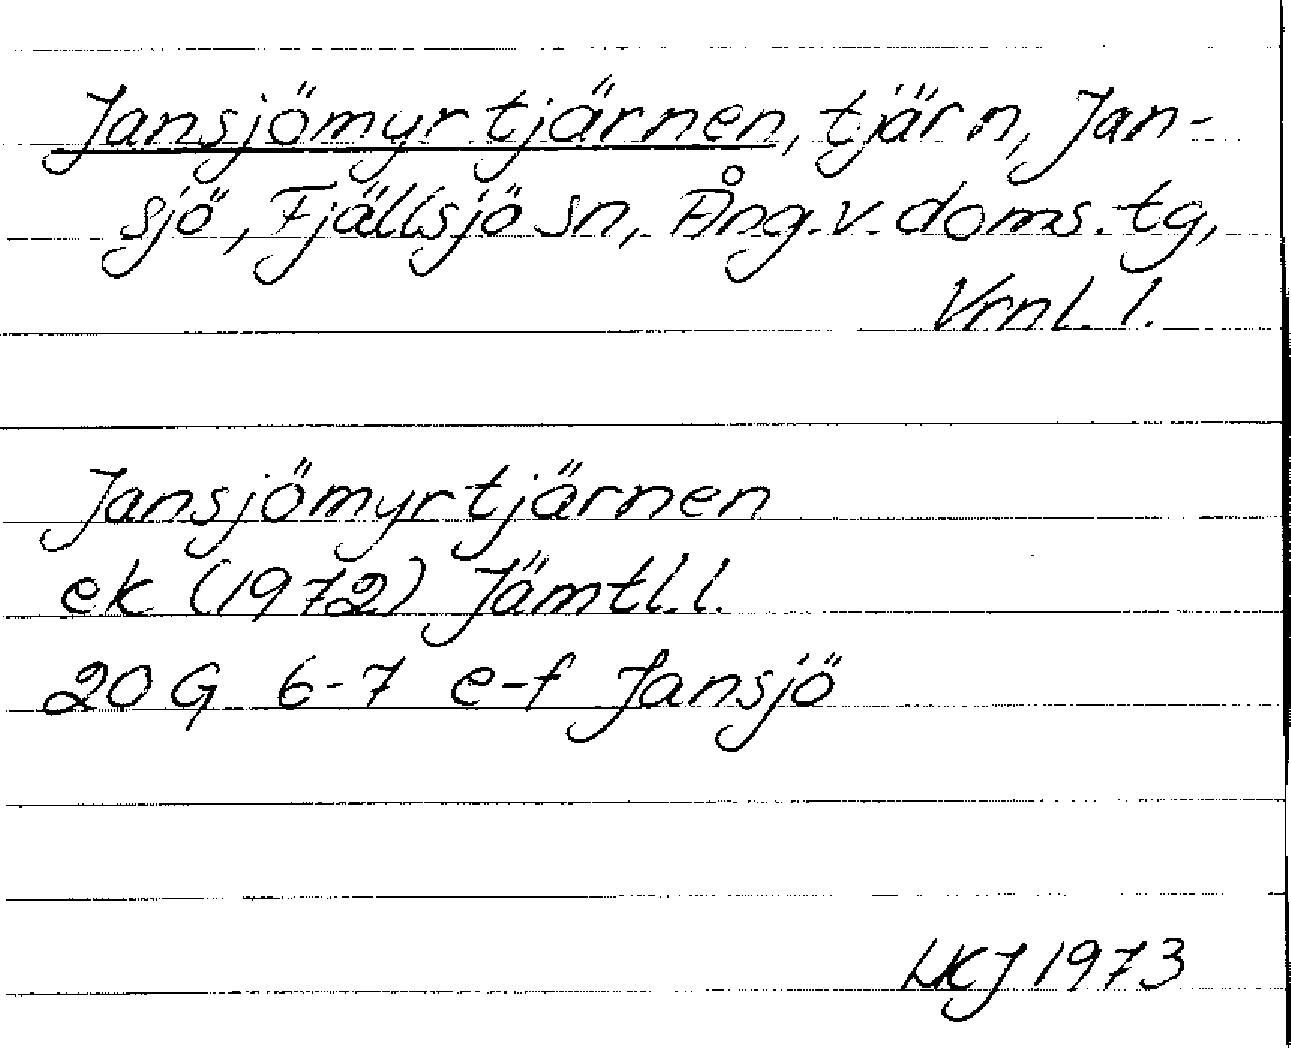 Jansjömyrtjärnen, tjärn, Jan-
sjö, Fjällsjö sn, Ång. v. doms. tg,
Vrnl. l.
Jansjömyrtjärnen
ek (1972) Jämtl. l.
20 G 6-7 e-f Jansjö
LKJ 1973